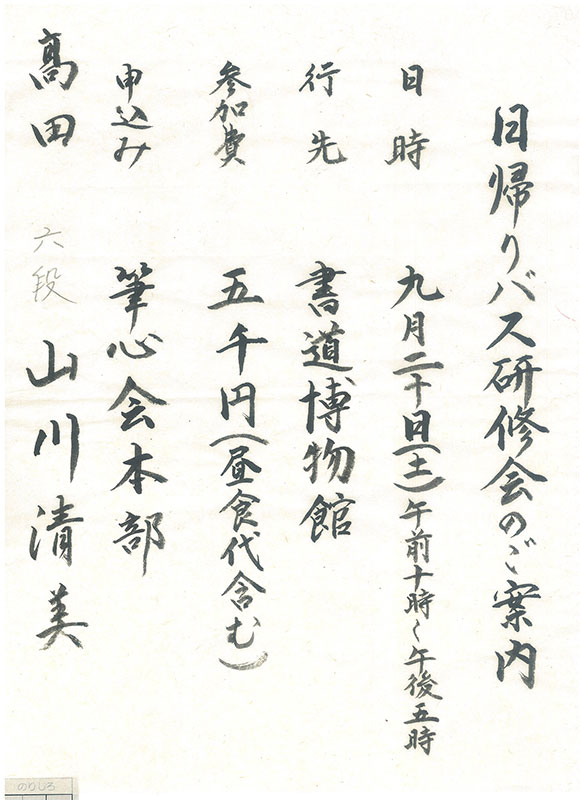 日帰りバス研修会のご案内
日時 九月二十日(土)午前十時〜午後五時
行先 書道博物館
参加費 五千円(昼食代含む)
申込み 筆心会本部
髙田 六段 山川清美
のりしろ